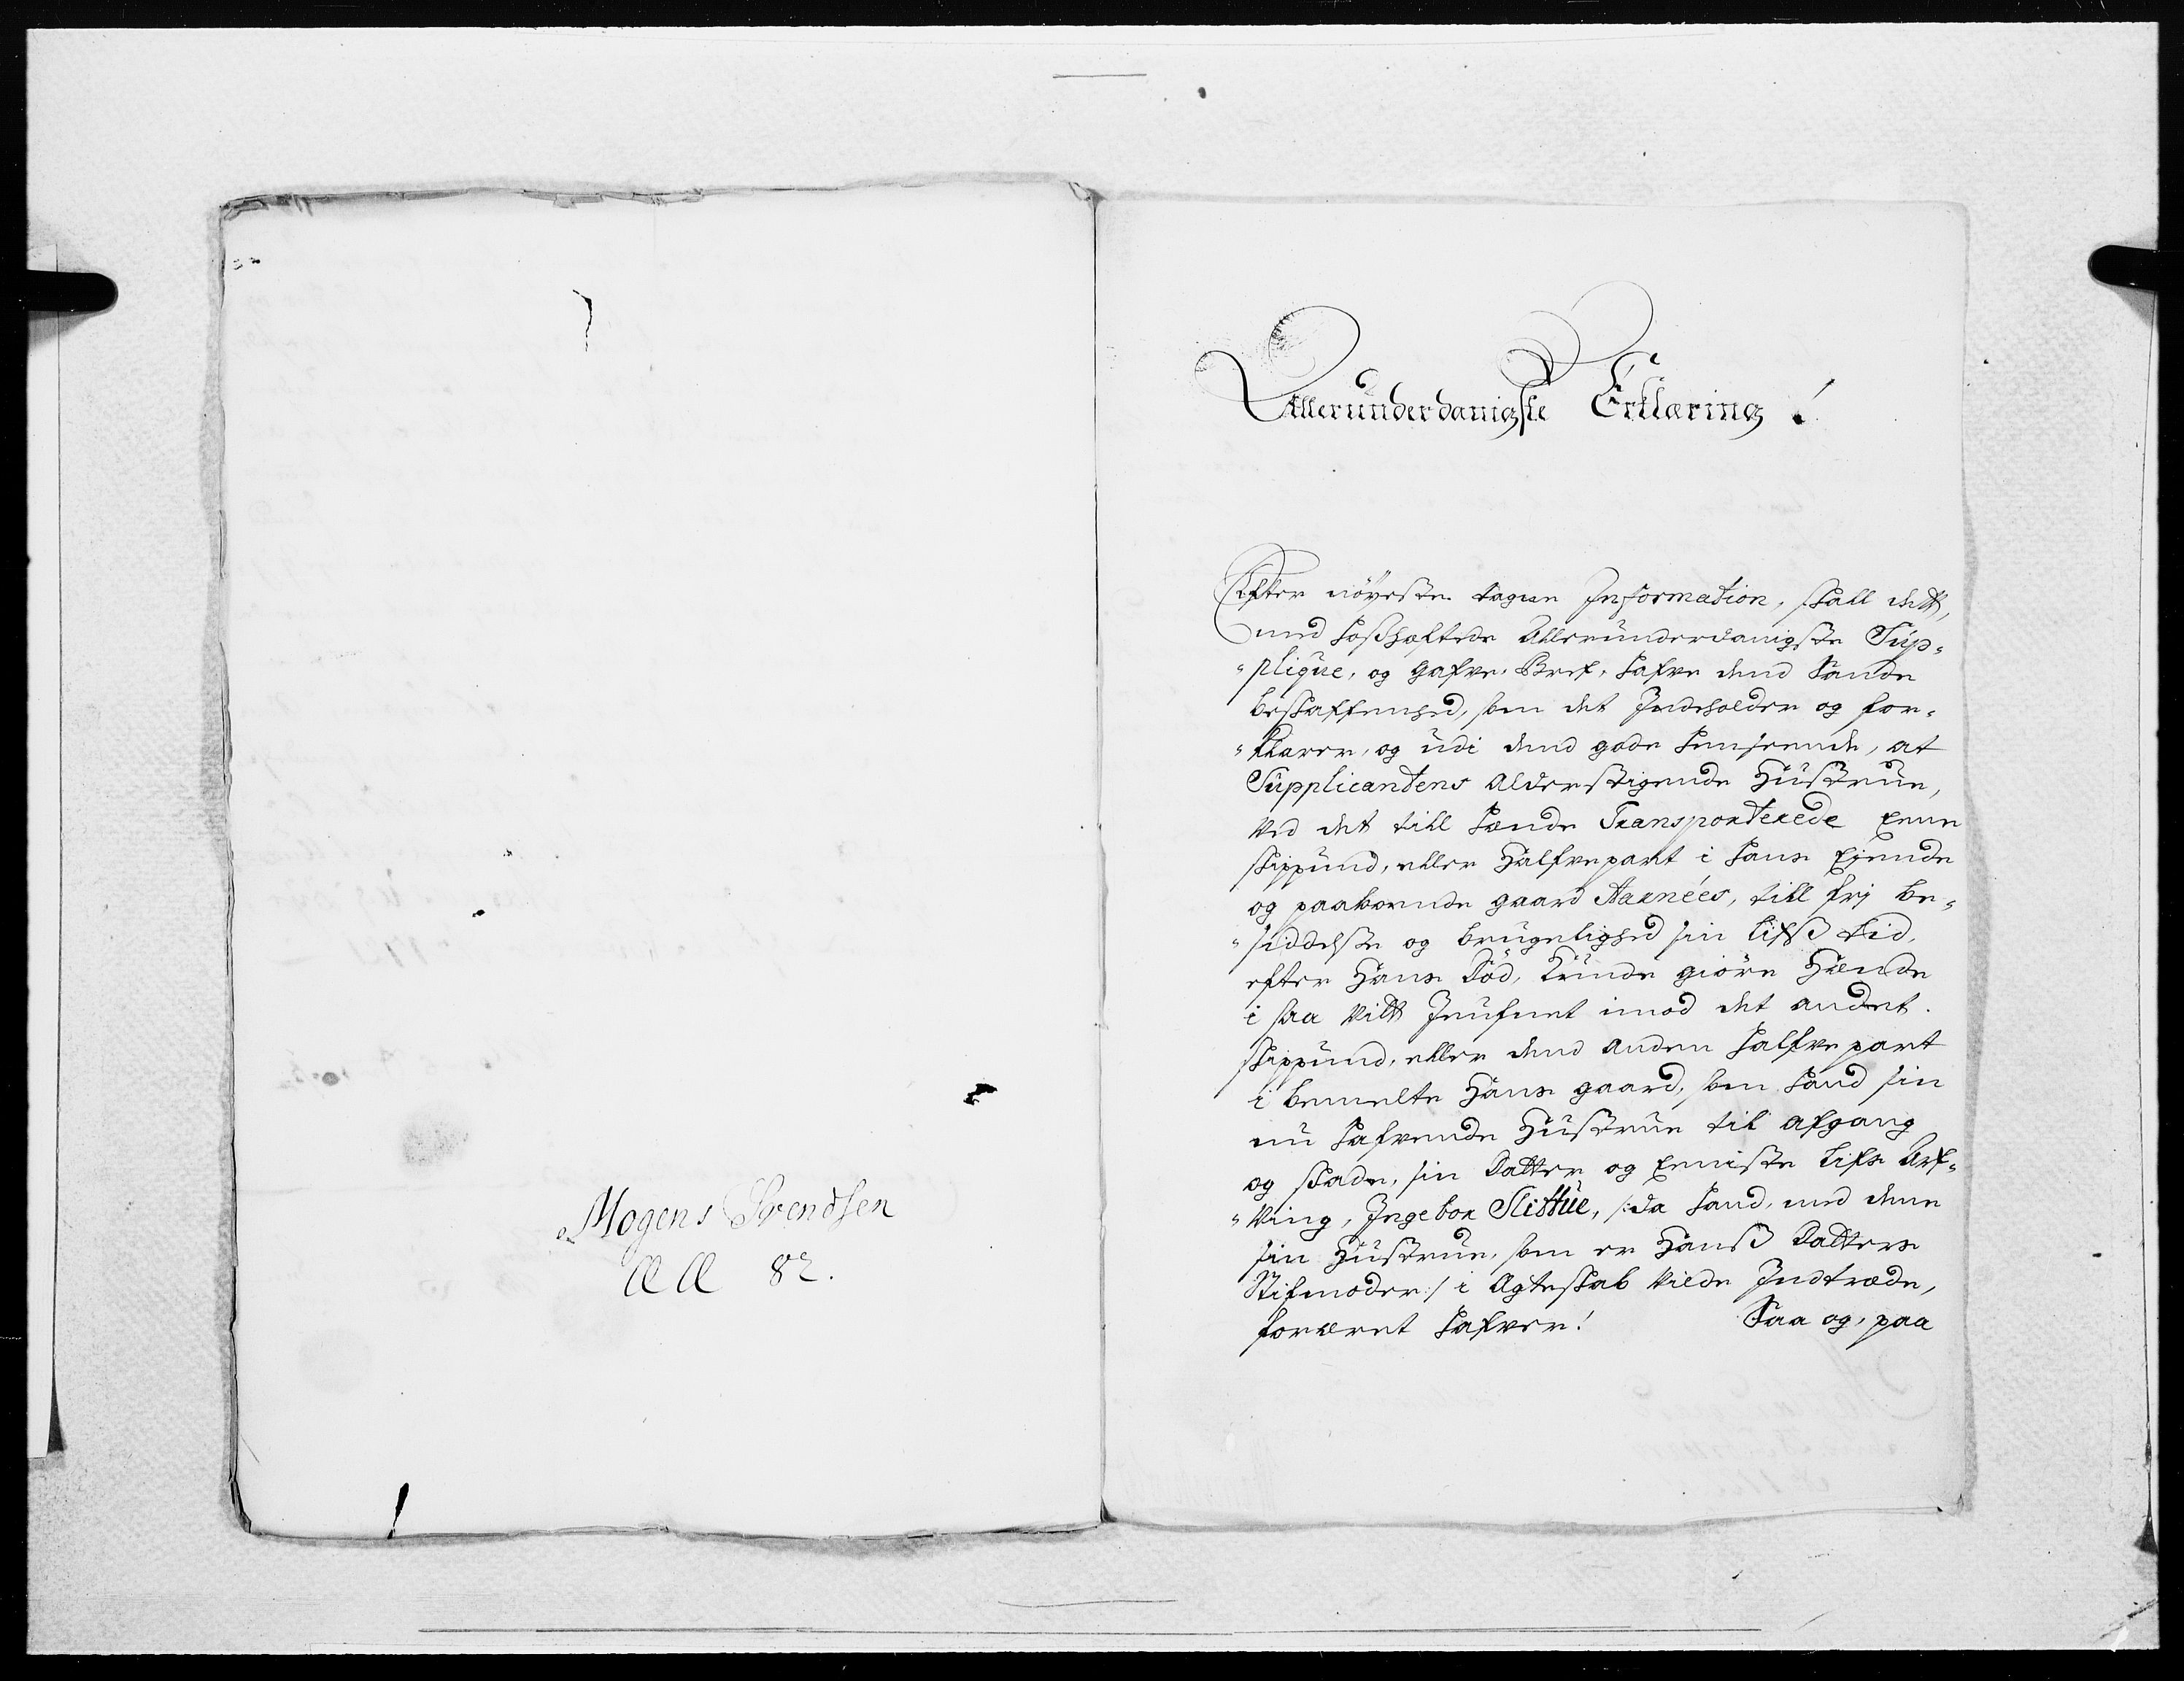 Mogens Svendsen
Æ Æ 82.
Allerunderdanigste Erklæring!
Efter nöyeste tagen Information, skall dett,
med hoshæftede Allerunderdanigste Sup-
"plique, og gafve-Bref, hafve dend Sande
beskaffenhed, som det Indeholder og for-
"klarer, og udi dend gode henseende, at
Supplicantens alderstigende Hustrue,
ved det till hende Transporterede Eene
skippund, eller Halfvepart i hans Eiende
og paaboende gaard Aarnées, till frj be-
"siddelse og brugelighed sin Lifs tid,
efter Hans Död, kunde giöre Hende
i saa vitt Jeufnet imod det andet.
skippund, eller dend anden halfve part
i bemelte Hans gaard, som hand sin
nu hafvende Hustrue til afgang
og skade, sin Datter og Eeniste Lifs Arf-
"ving, Ingebor Slittue, /: da hand, med denne
sin Hustrue, som er Hans Datters
Stifmoder :/ i Ægteskab vilde Indtræde,
foræret hafver! Saa og, paa